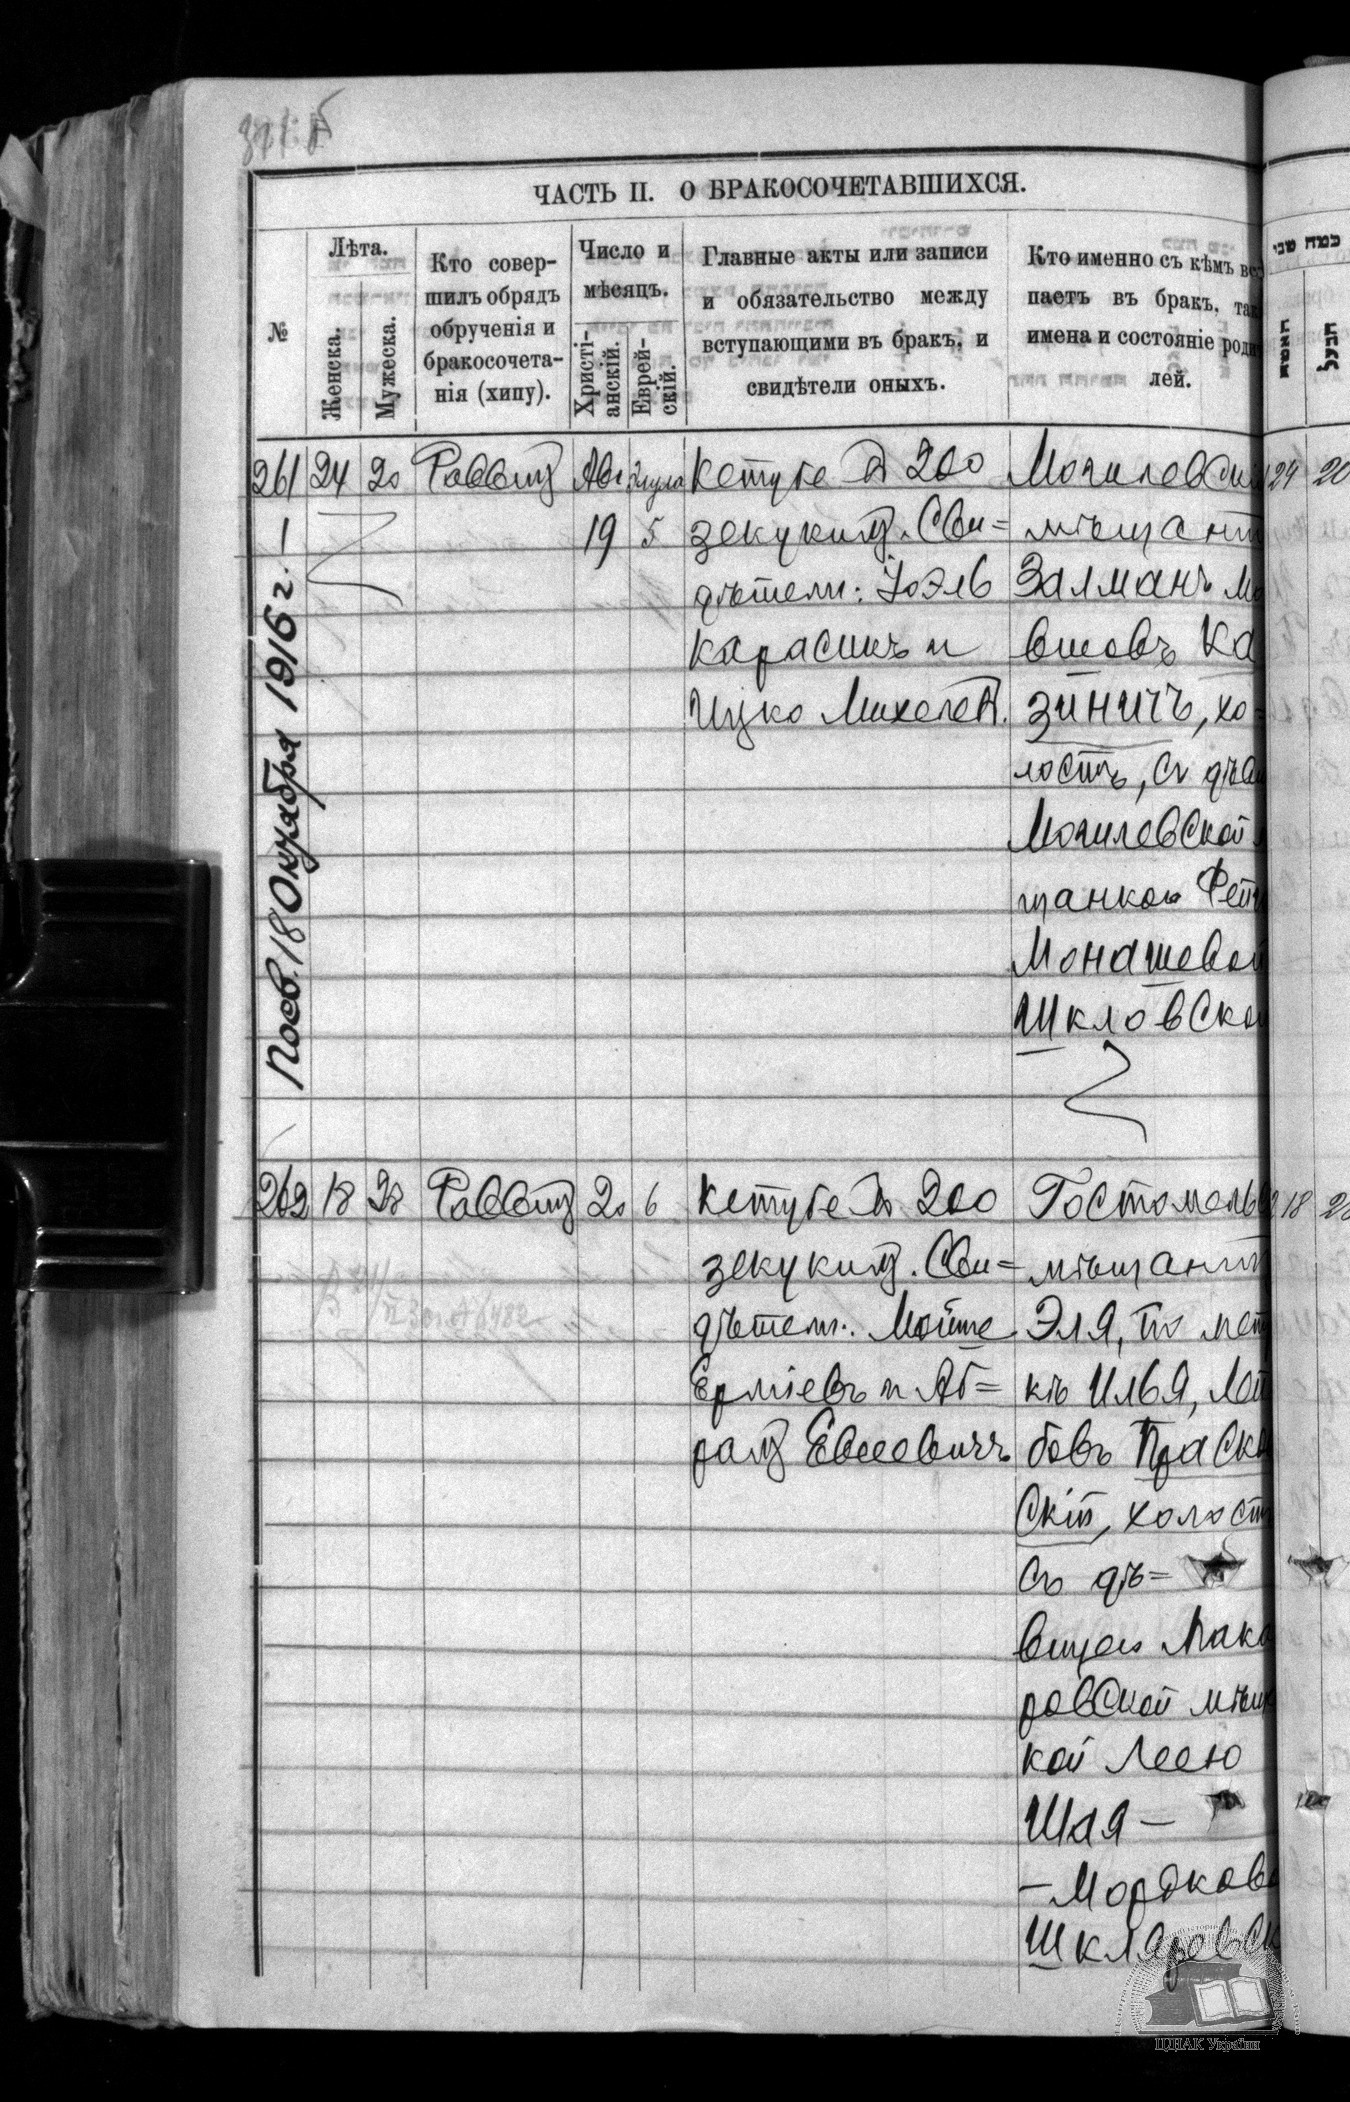 ЧАСТЬ II. О БРАКОСОЧЕТАВШИХСЯ.
№
Лѣта.
Женска.
Мужеска.
Кто совер-
шилъ обрядъ
обрученія и
бракосочета-
нія (хипу).
Число и
мѣсяцъ.
Христі-
анскій.
Еврей-
скій.
Главные акты или записи
и обязательство между
вступающими въ бракъ, и
свидѣтели оныхъ.
Кто именно съ кѣмъ всту
паетъ въ бракъ, так
имена и состояніе роди
лей.
261 24 20 Раввинъ Авг Элула
19 5
Кетубе въ 200
зекукимъ. Сви=
дѣтели: Іоэль
Карасикъ и
Ицко Михелев.
Могилевскій
мѣщанин
Залманъ Мо
вшовъ Ка
зиничъ, хо-
лостъ, съ дѣв
Могилевской м
щанкою Фей
Монашевой
Шкловской
24 20
Посв. 18 Октября 1916 г.
262 18 28 Раввинъ 20 6
Кетубе въ 200
зекукимъ. Сви=
дѣтели: Мойше
Ерміевъ и Аб=
рамъ Евсеевичъ
Гостомельс
мѣщанин
Эля, по мет
кѣ Илья, Лей
бовъ Праско
скій, холост
съ дѣ=
вицею Мака
ровской мѣщ
кой Леею
Шая —
— Мордково
Шкляревск
18 28
ЦДІАК України